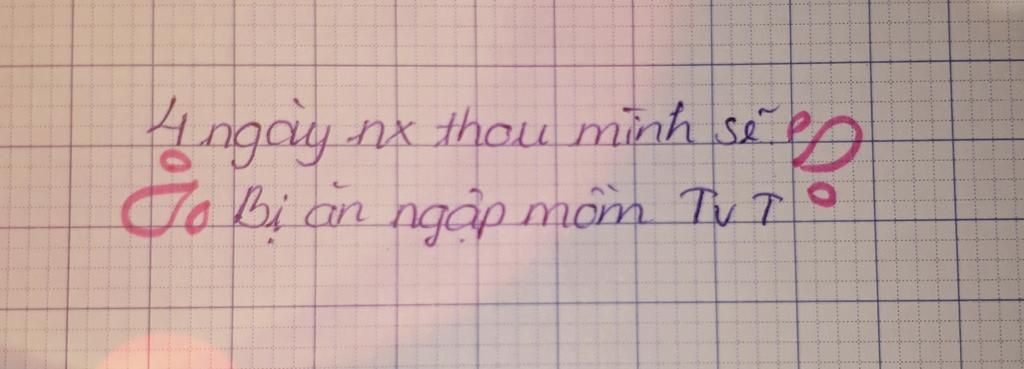 4 ngày nx thou mình sẽ
Bị ăn ngập mồm TvT